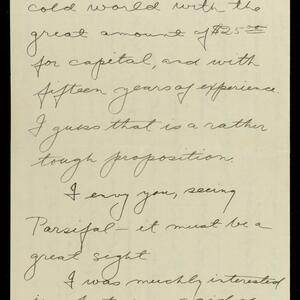 cold world with the
great amount of $25.00
for capital, and with
fifteen years of experience.
I guess that is a rather
tough proposition.
I envy you, seeing
Parsifal – it must be a
great sight
I was muchly interested